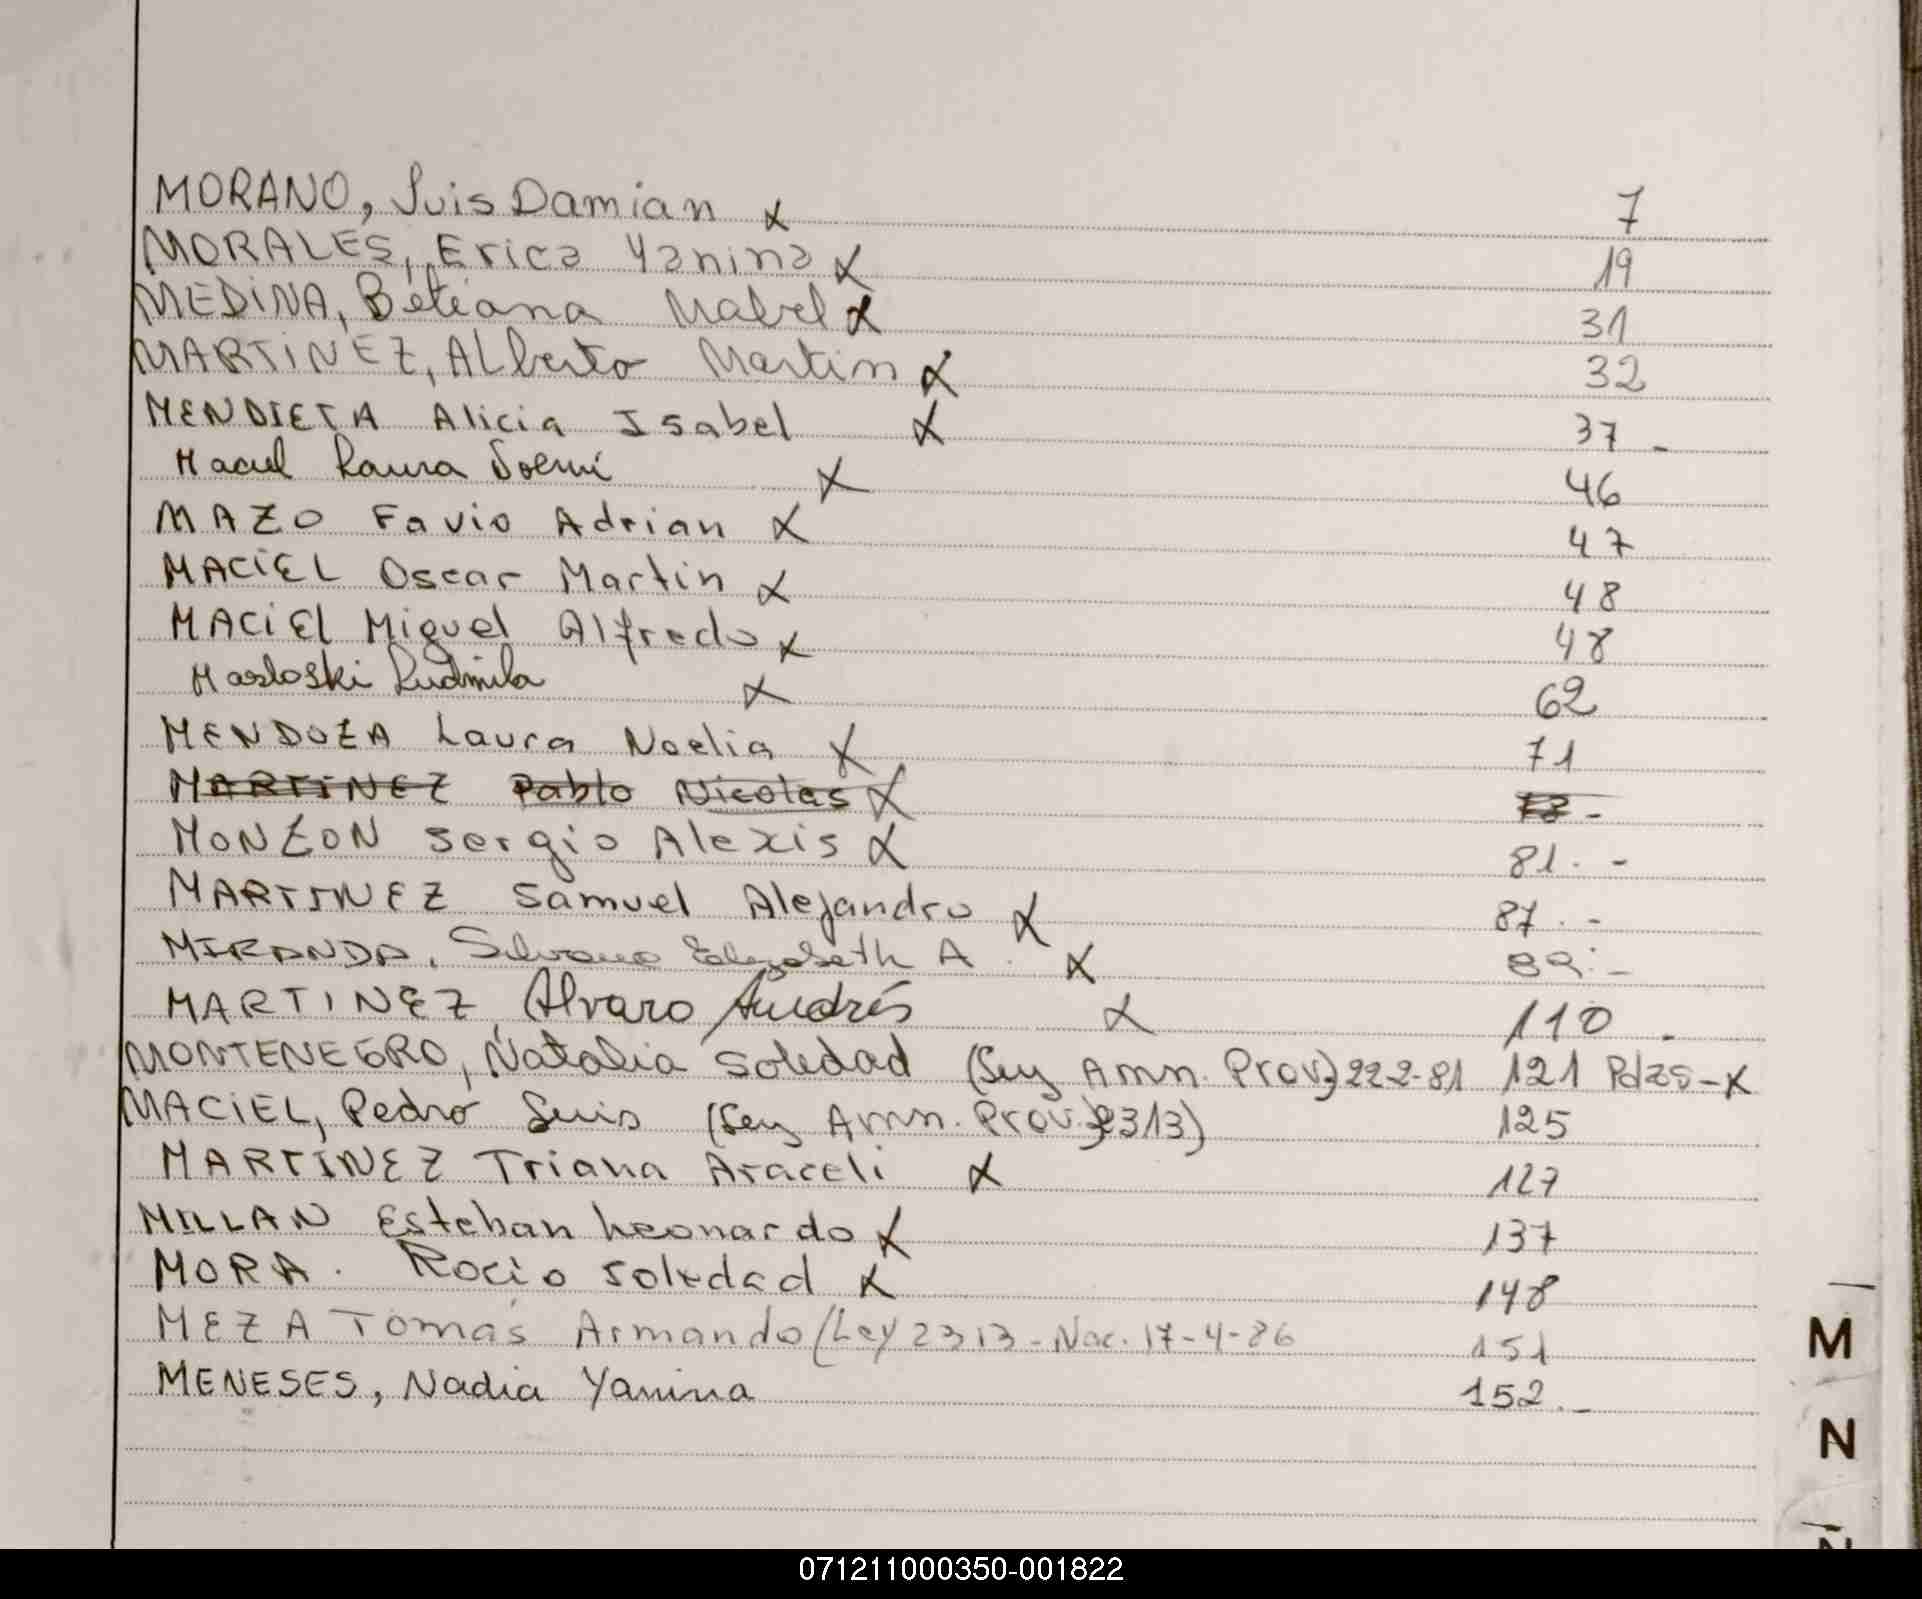 MORANO, Luis Damian x 7
MORALES, Erica Yanina x 19
MEDINA, Betiana Mabel x 31
MARTINEZ, ALberto Martin x 32
MENDIETA Alicia Isabel x 37 -
Maciel Laura Noemi x 46
MAZO Favio Adrian x 47
MACiEL Oscar Martin x 48
MACiEl Miguel Alfredo x 48
Masloski Ludmila x 62
MENDOZA Laura Noelia x 71
MARTiNEZ Pablo Nicolas x -
MONZON Sergio Alexis x 81. -
MARTINEZ Samuel Alejandro x 87. -
MIRANDA, Silvana Elizabeth A. x 89. -
MARTINEZ, Alvaro Andrés x 110 -
MONTENEGRO, Natalia Soledad (Ley Amn. Prov.) 222-81 121 Pdas - x
MACiEL, Pedro Luis (Ley Amn. Prov. 2313) 125
MARTINEZ Triana Araceli x 127
MILLAN Esteban Leonardo x 137
MORA. Rocio Soledad x 148
MEZA Tomás Armando (Ley 2313 - Nac. 17-4-86 151
MENESES, Nadia Yanina 152. -
M
N
071211000350-001822